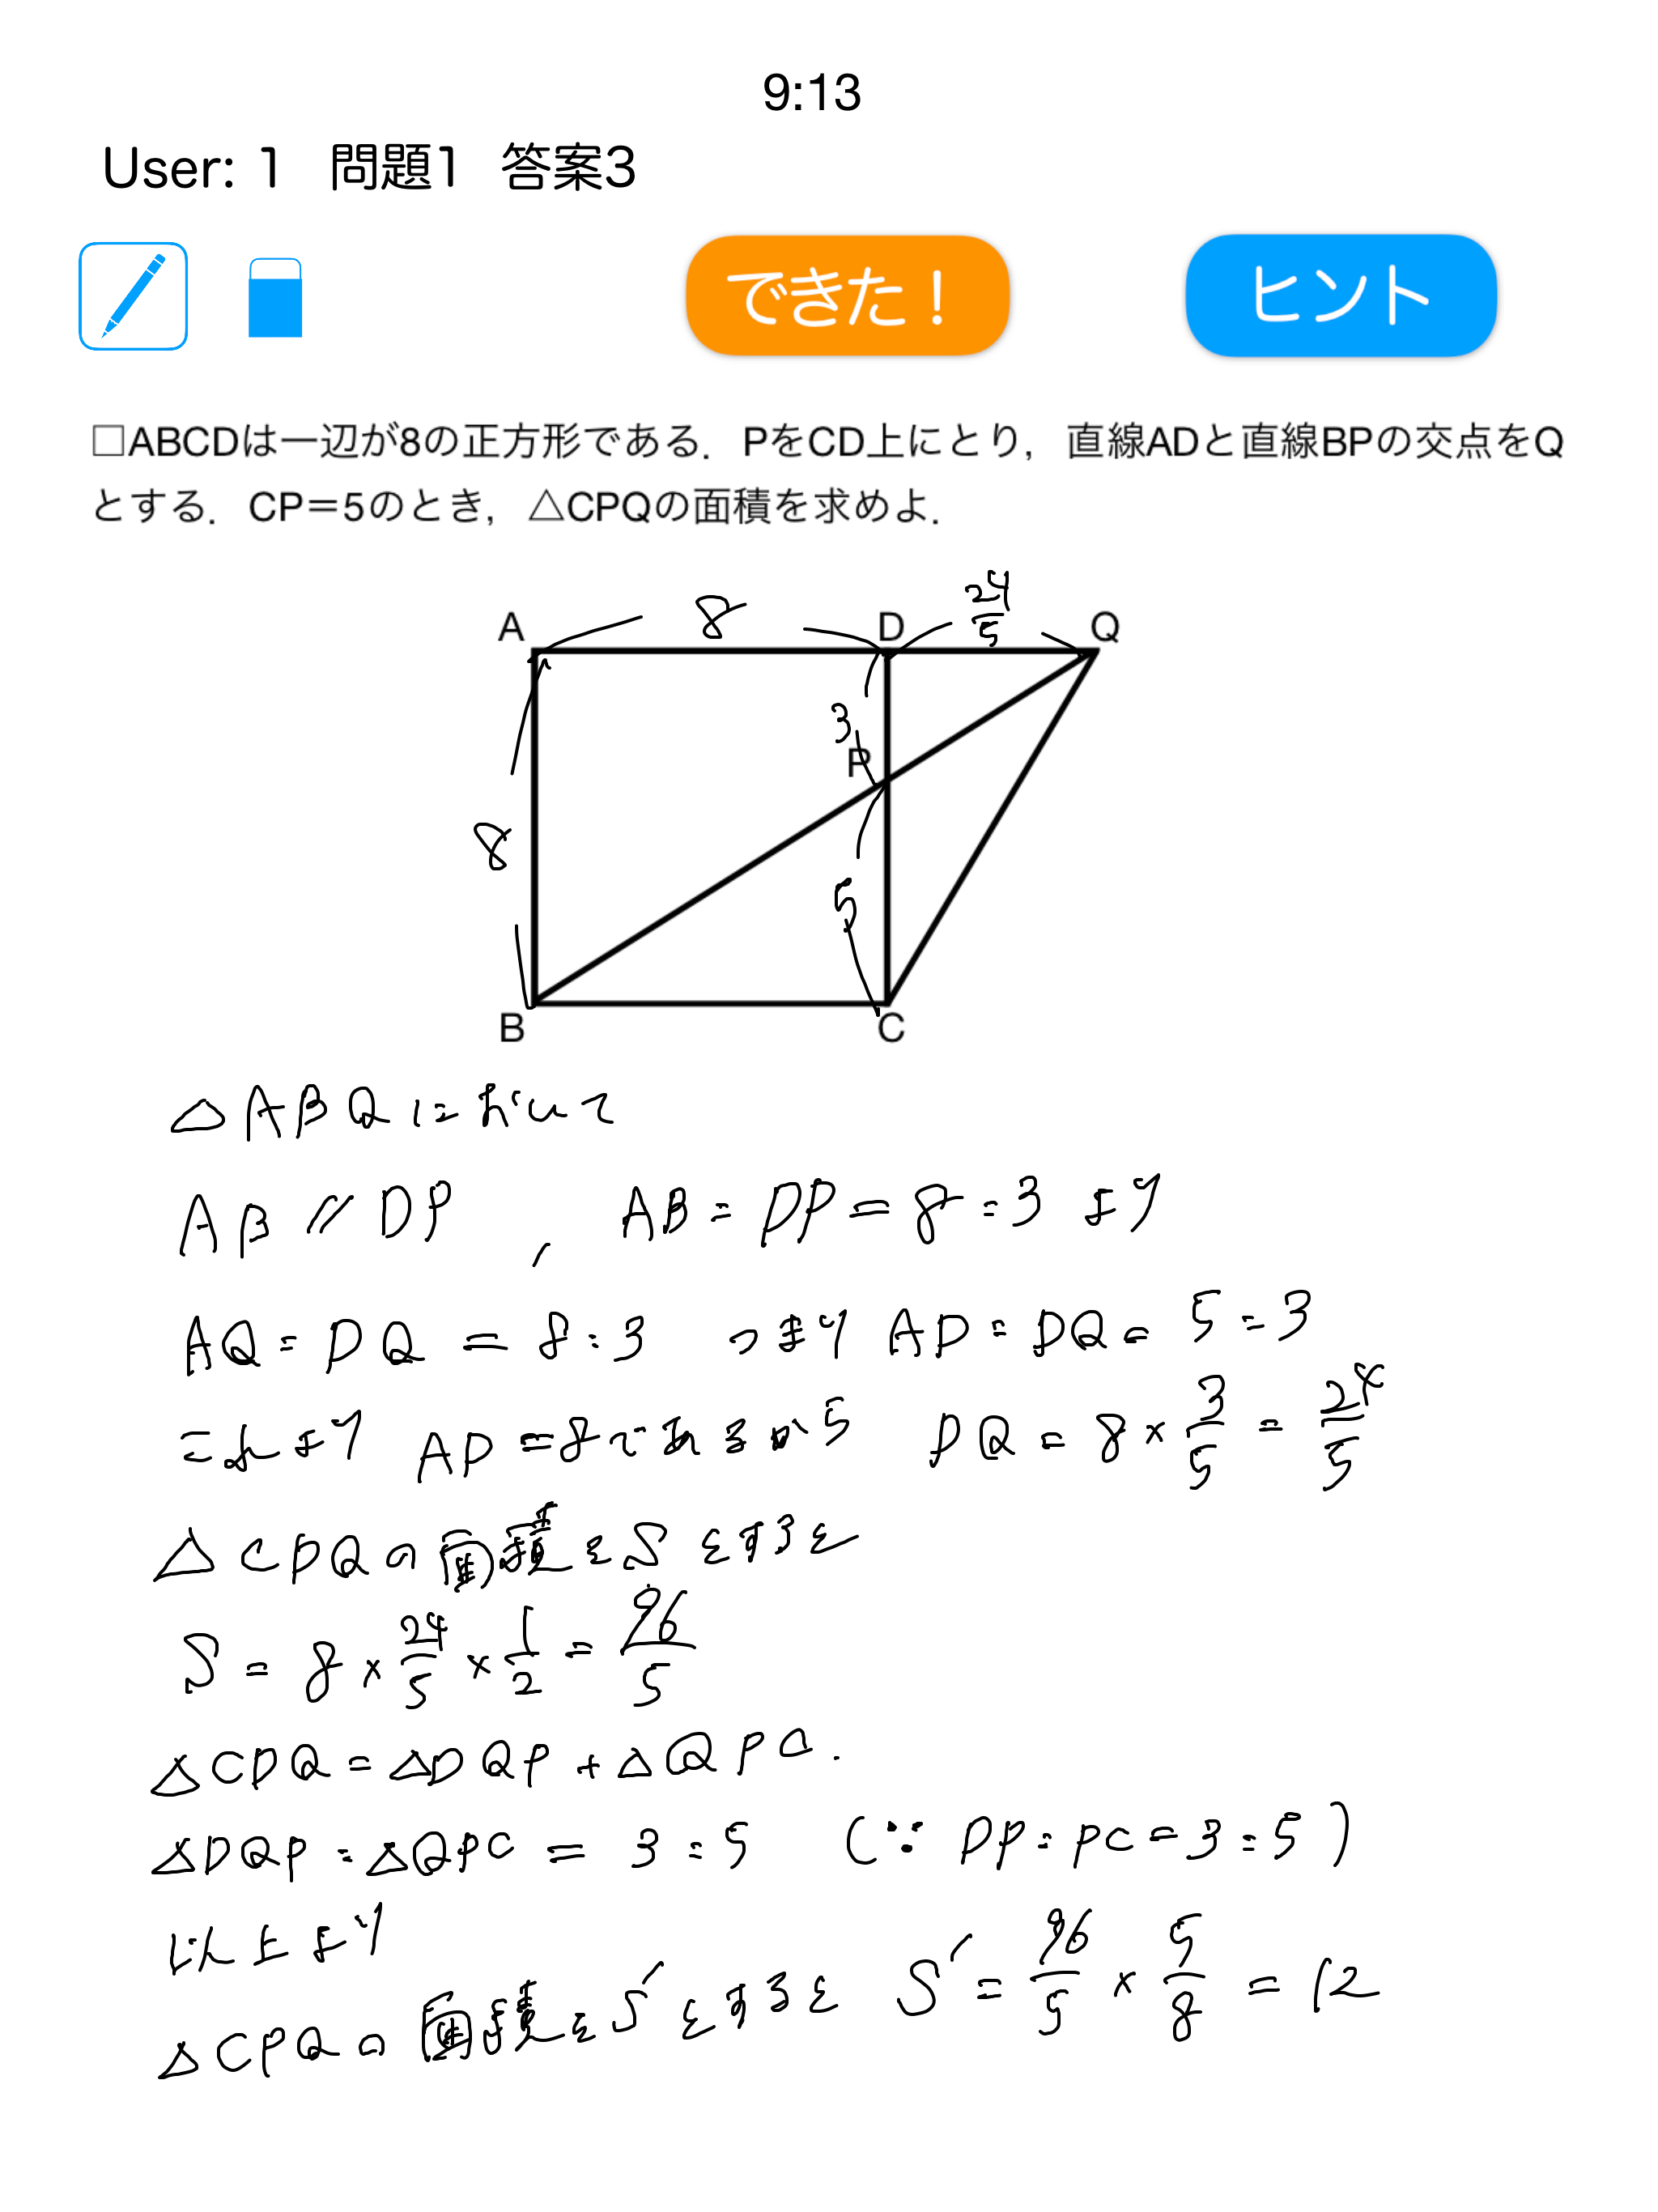 9:13
User: 1 問題1 答案3
できた！ ヒント
□ABCDは一辺が8の正方形である．PをCD上にとり，直線ADと直線BPの交点をQ
とする．CP＝5のとき，△CPQの面積を求めよ．
24/5
A 8 D Q
3
P
8
5
B C
△ABQにおいて
AB // DP , AB:DP = 8:3 より
AQ:DQ = 8:3 つまり AD:DQ = 5:3
これより AD=8であるから DQ = 8×3/5 = 24/5
△CDQの面積をSとすると
S = 8×24/5×1/2 = 96/5
△CDQ=△DQP+△QPC.
△DQP:△QPC = 3:5 (∵ DP:PC=3:5)
以上より
△CPQの面積をS′とすると S′= 96/5 × 5/8 = 12